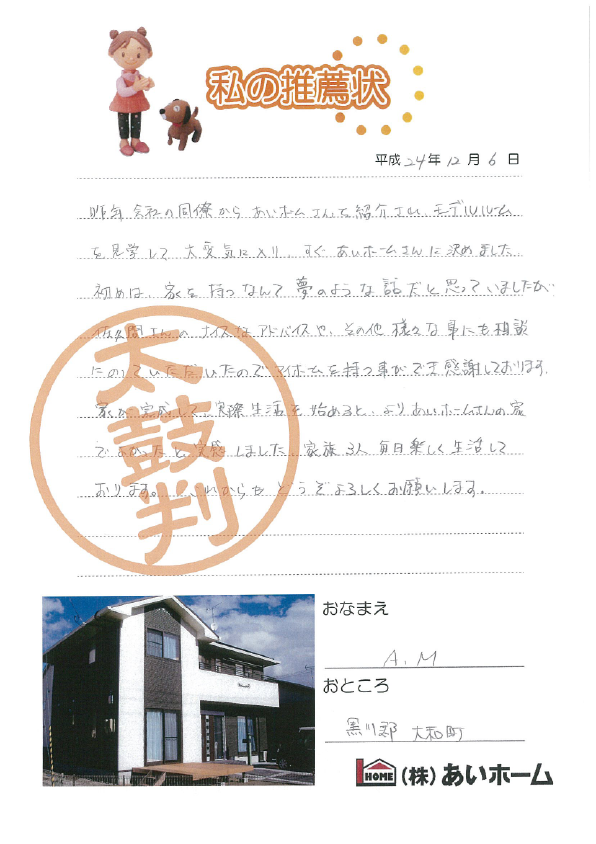 私の推薦状
平成24年12月6日
昨年会社の同僚からあいホームさんを紹介され、モデルルーム
を見学して大変気に入り、すぐあいホームさんに決めました。
初めは、家を持つなんて夢のような話だと思っていましたが
佐久間さんのナイスなアドバイスや、その他様々な事にも相談
にのっていただいたのでマイホームを持つ事ができ感謝しております。
家が完成して、実際生活を始めると、よりあいホームさんの家
でよかったと実感しました。家族3人毎日楽しく生活して
おります。これからもどうぞよろしくお願いします。
太鼓判
おなまえ
A.M
おところ
黒川郡 大和町
HOME (株)あいホーム